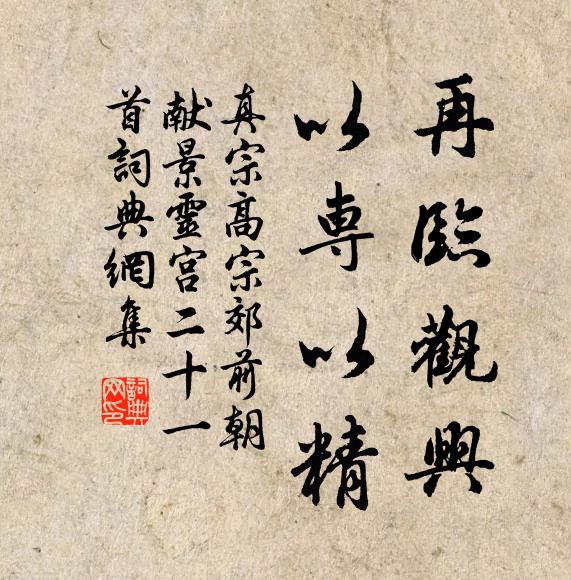 再臨觀興
以専以精
真宗高宗郊前朝
献景靈宮二十一
首詞典網集
詞典网印